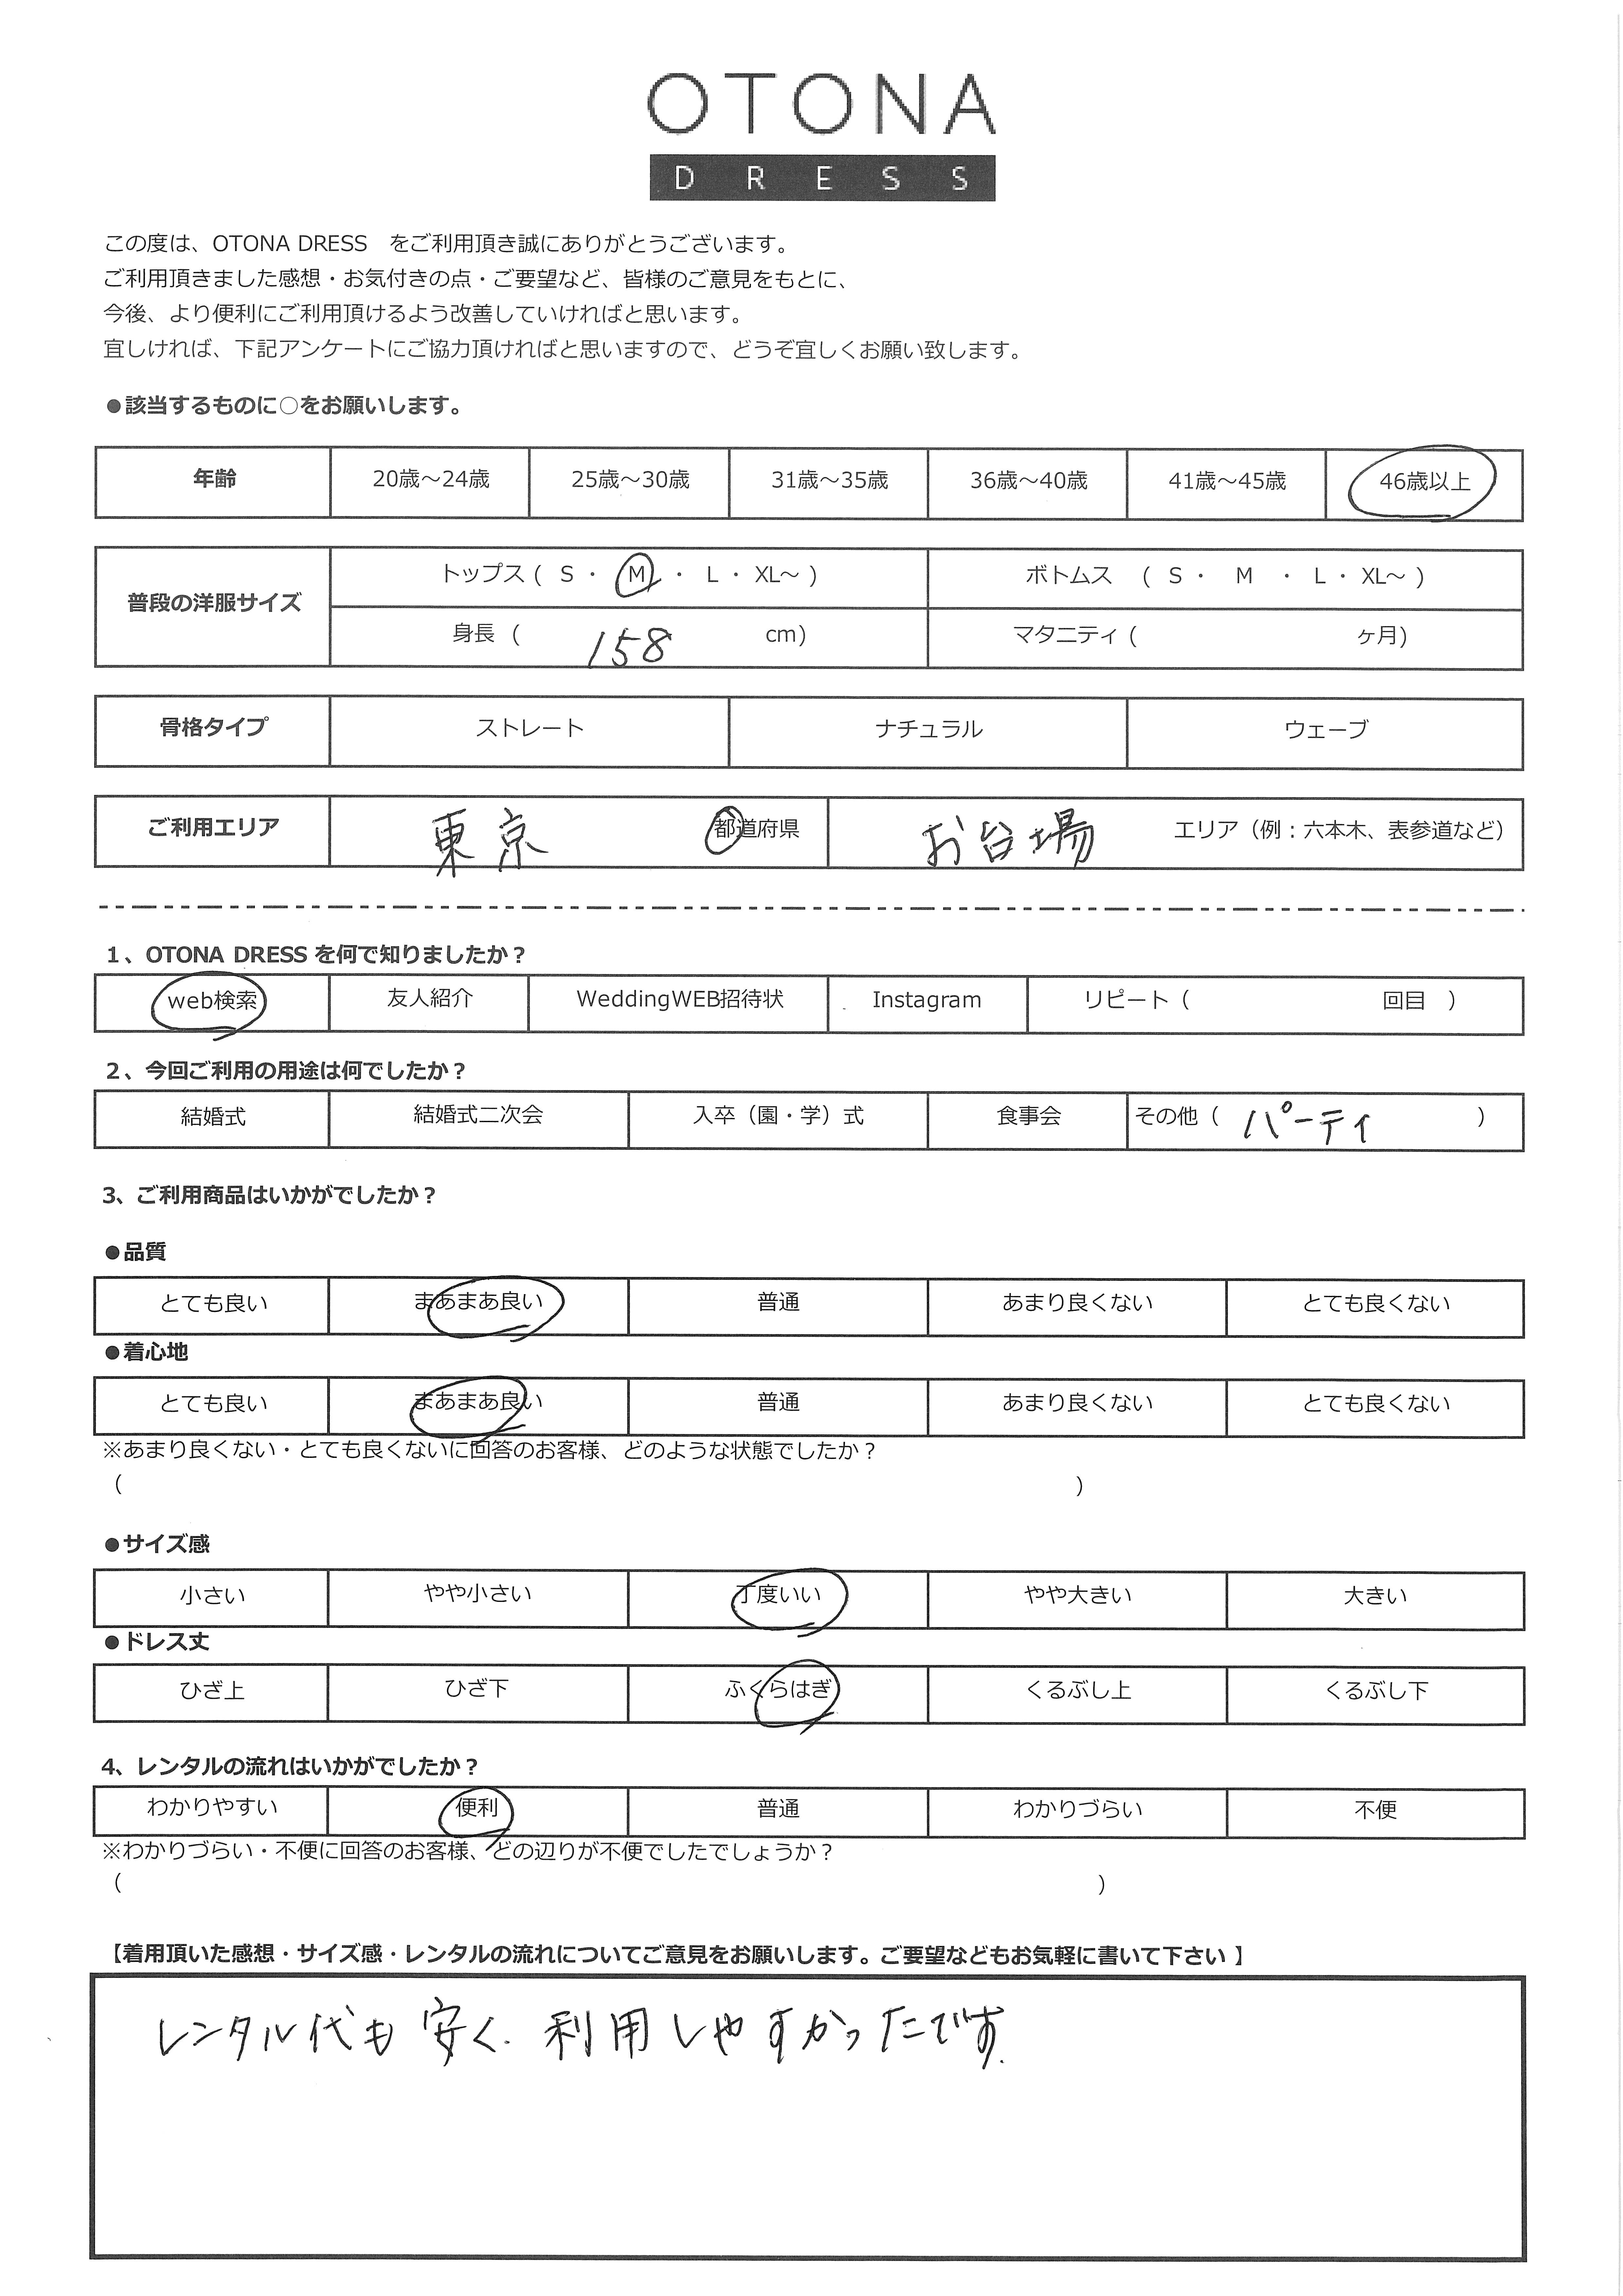 OTONA
DRESS
この度は、OTONA DRESS　をご利用頂き誠にありがとうございます。
ご利用頂きました感想・お気付きの点・ご要望など、皆様のご意見をもとに、
今後、より便利にご利用頂けるよう改善していければと思います。
宜しければ、下記アンケートにご協力頂ければと思いますので、どうぞ宜しくお願い致します。
●該当するものに○をお願いします。
年齢 20歳～24歳 25歳～30歳 31歳～35歳 36歳～40歳 41歳～45歳 46歳以上
普段の洋服サイズ トップス ( S ・ M ・ L ・ XL～ ) ボトムス ( S ・ M ・ L ・ XL～ )
身長 ( 158 cm) マタニティ ( ヶ月)
骨格タイプ ストレート ナチュラル ウェーブ
ご利用エリア 東京 都道府県 お台場 エリア（例：六本木、表参道など）
1、OTONA DRESS を何で知りましたか？
web検索 友人紹介 WeddingWEB招待状 Instagram リピート（ 回目 ）
2、今回ご利用の用途は何でしたか？
結婚式 結婚式二次会 入卒（園・学）式 食事会 その他（ パーティ ）
3、ご利用商品はいかがでしたか？
●品質
とても良い まあまあ良い 普通 あまり良くない とても良くない
●着心地
とても良い まあまあ良い 普通 あまり良くない とても良くない
※あまり良くない・とても良くないに回答のお客様、どのような状態でしたか？
（ ）
●サイズ感
小さい やや小さい 丁度いい やや大きい 大きい
●ドレス丈
ひざ上 ひざ下 ふくらはぎ くるぶし上 くるぶし下
4、レンタルの流れはいかがでしたか？
わかりやすい 便利 普通 わかりづらい 不便
※わかりづらい・不便に回答のお客様、どの辺りが不便でしたでしょうか？
（ ）
【着用頂いた感想・サイズ感・レンタルの流れについてご意見をお願いします。ご要望などもお気軽に書いて下さい 】
レンタル代も安く、利用しやすかったです。